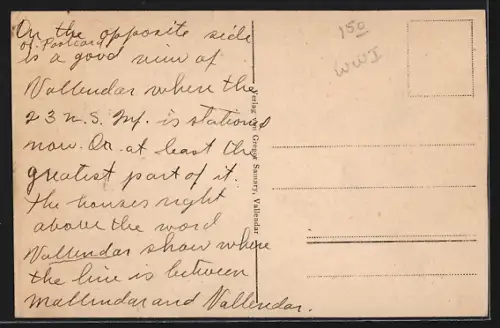 On the opposite side
of Postcard
is a good view of
Vallendar where the
23 U.S. Inf. is stationed
now. Or at least the
greatest part of it.
The houses right
above the word
Vallendar show where
the line is between
Mallendar and Vallendar.
Verlag von Gregor Samary, Vallendar
150
WWI